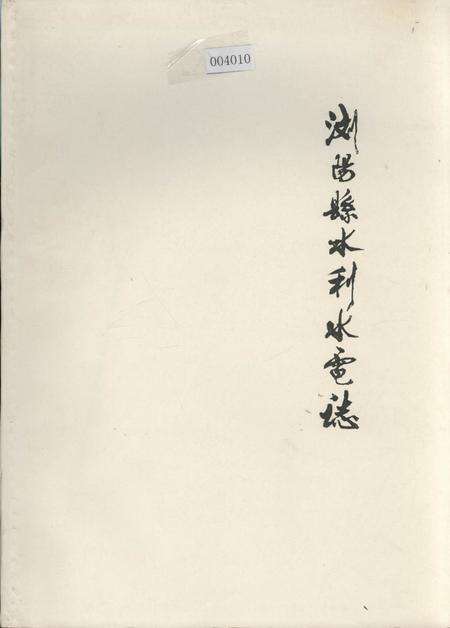 004010
浏陽縣水利水電誌